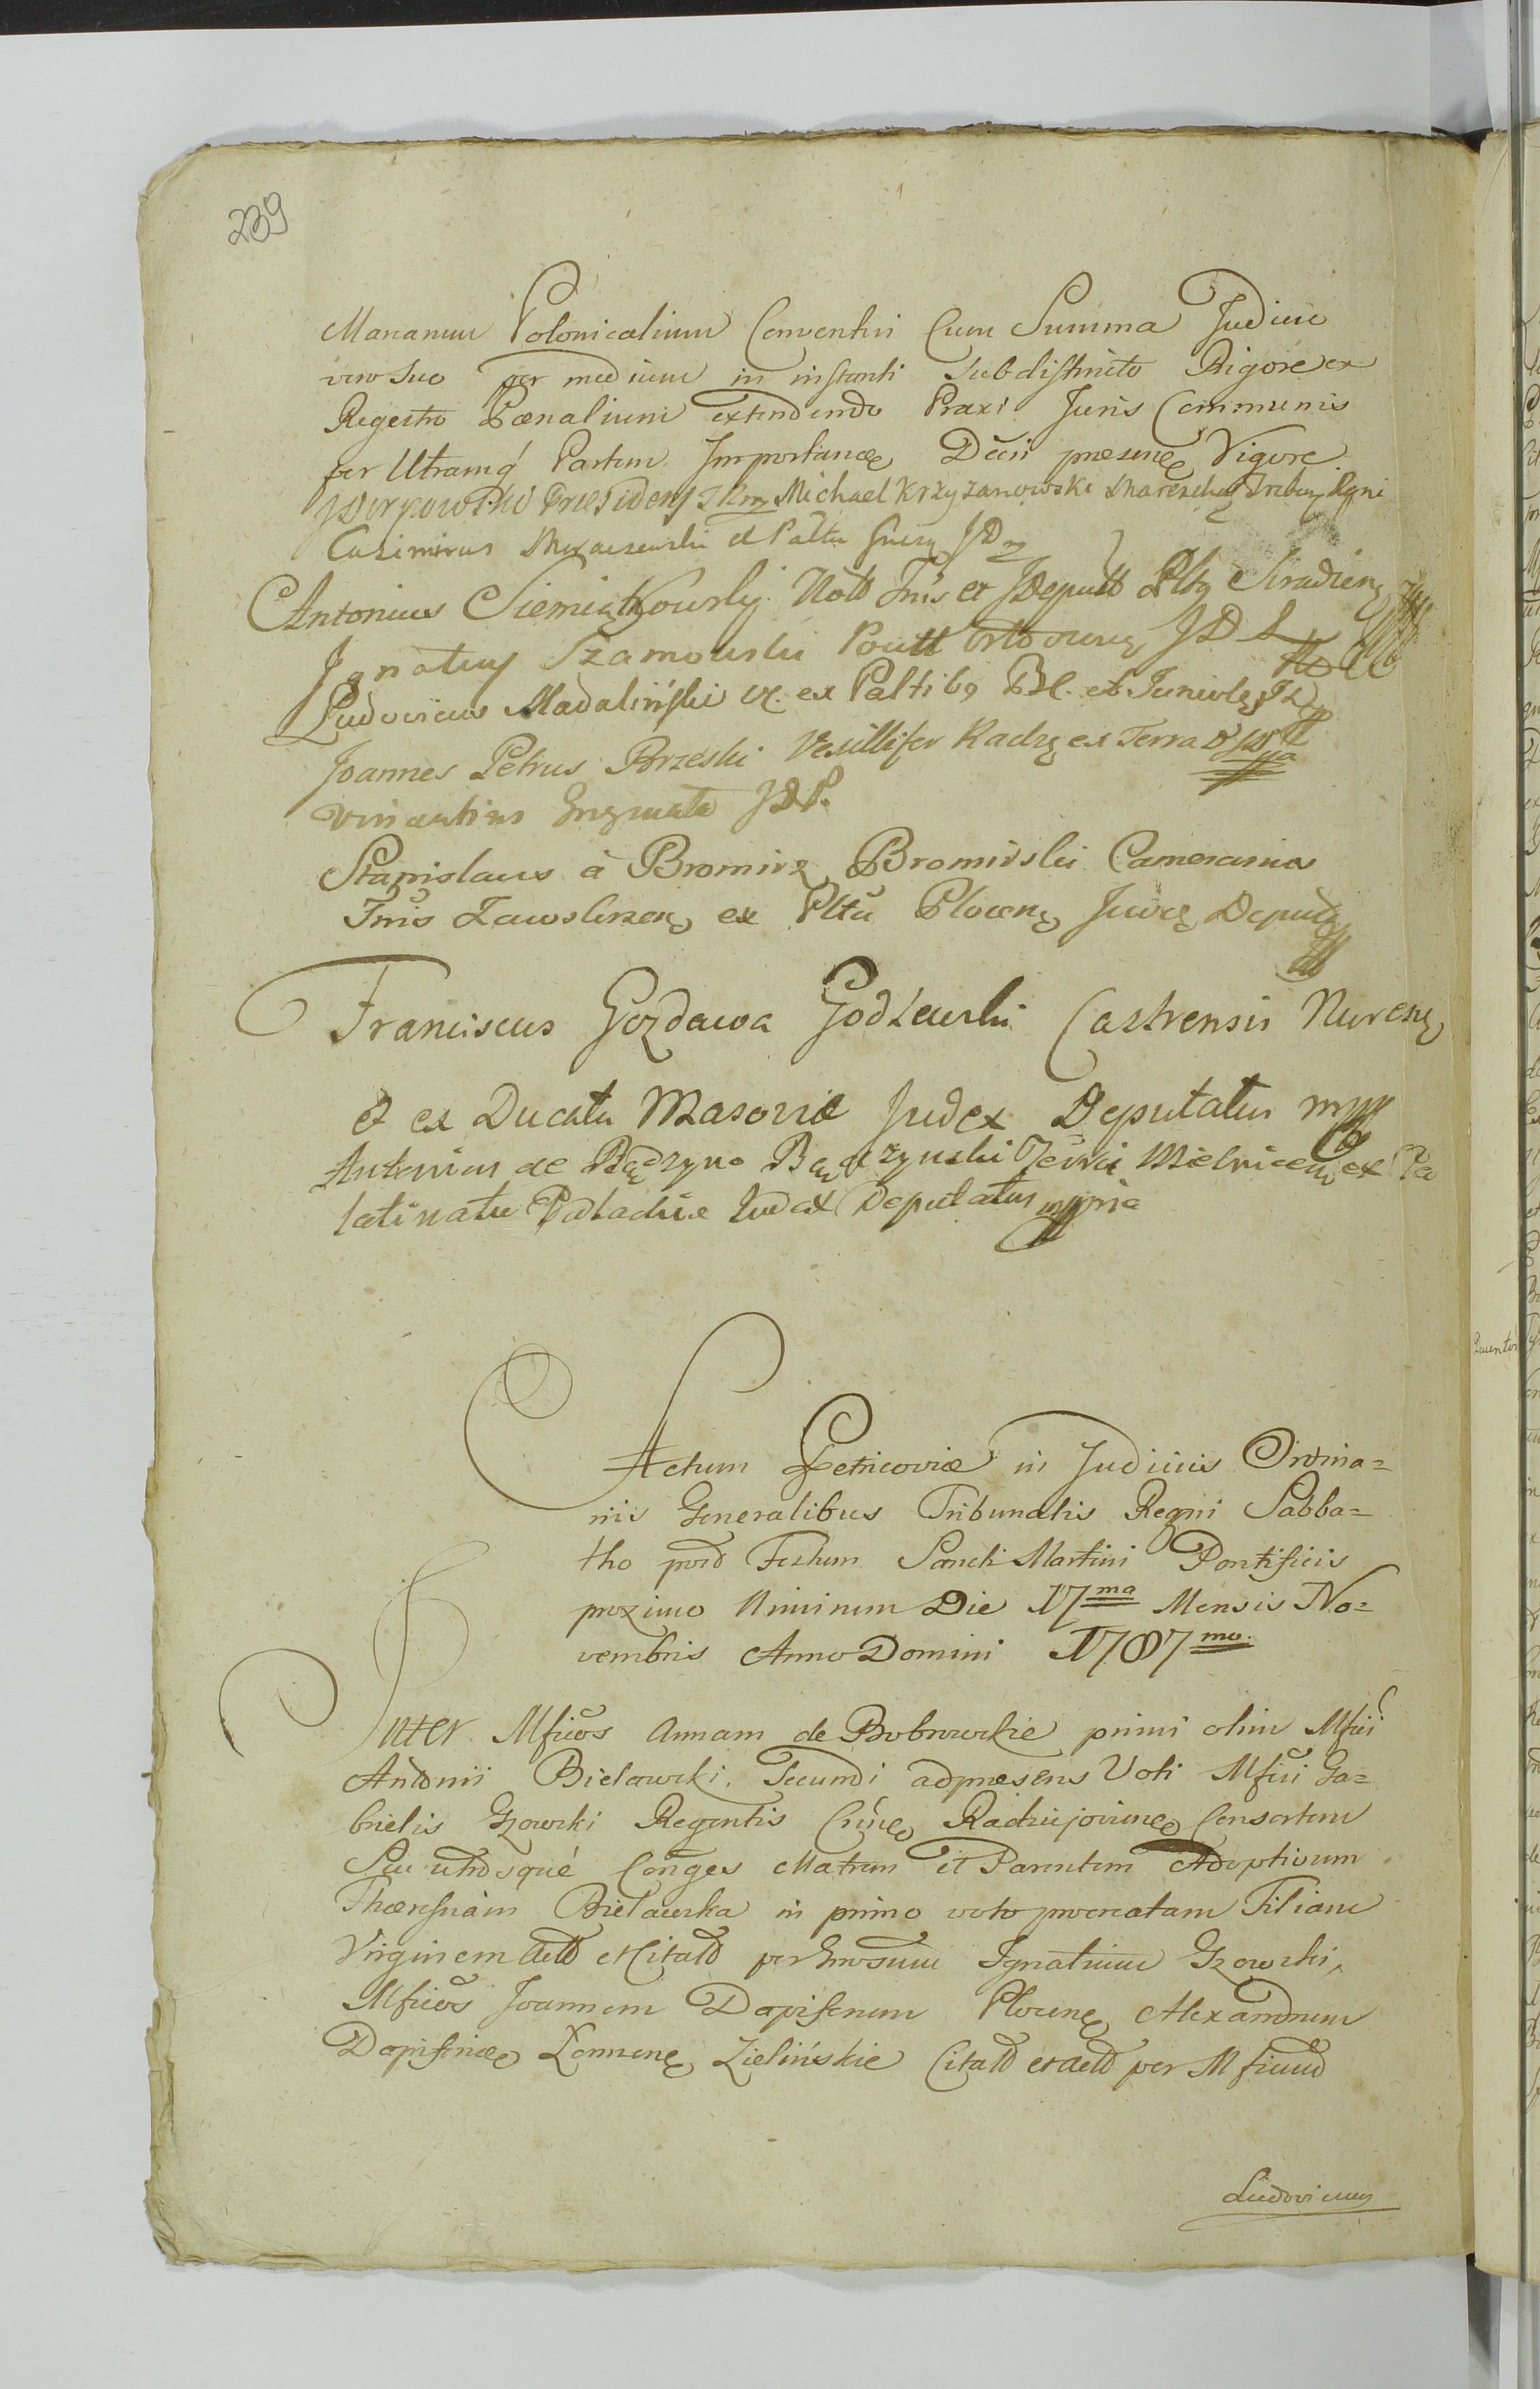 239
Marianum Polonicalium Conventui Cum Summa Judicio
vero suo per medium in instanti sub distincto Rigore ex
Regestro Pœnalium extendendo Praxi Juris Communis
per Utramq́ Partem Importanda Dećii præsenę Vigore
Præsidens Michael Krzyzanowski Marszałę Tribuȝ Rgni
Casimirus et Palłu Gneznę JD
Antonius Siemiątkowsky Nott Trris et JDeputt Pltȝ Siradienę
Ignatius Szamowski Poutt Ostoovienȝ JD
Ludovicus Madaliński ex Paltibȝ et Juniwlȝ
Joannes Petrus Brzeski Vexillifer Radzȝ ex Terra
Vincentius JDP.
Stanislaus à Bromirz Bromirski Camerarius
Trris Zawskrzenę ex Pltu Plocenę Judex Deputȝ
Franciscus Gozdawa Godlewski Castrensis Nurenę
et ex Ducatu Masoviæ Judex Deputatus mpp
Antonius de Bądzyno Bądzynski Terræ Mielnicenȝ ex Pa
latinatu Podlachiæ Judex Deputatus mppria
Actum Petricoviæ in Judiciis Ordina=
riis Generalibus Tribunalis Regni Sabba=
tho post Festum Sancti Martini Pontificis
proximo Nimirum Die 17ma Mensis No=
vembris Anno Domini 1787mo.
Inter Mficos Annam de Bobrowskie primi olim Mfici
Antonii Bielawski, Secundi adpræsens Voti Mfici Ga=
brielis Gzowski Regentis Radziejoviensę Consortem
Seu utrosqué Conjges Matrem et Parentem Adoptivum
Thæresiam Bielawska in primo voto procreatam Filiam
Virginem Actt et Citatt per Gnrosum Ignatium Gzowski,
Mficos Joannem Dapiferum Plocenę Alexandrum
Dapiferidę Łomzenę Zielińskie Citatt et Actt per Mficum
Ludovicum